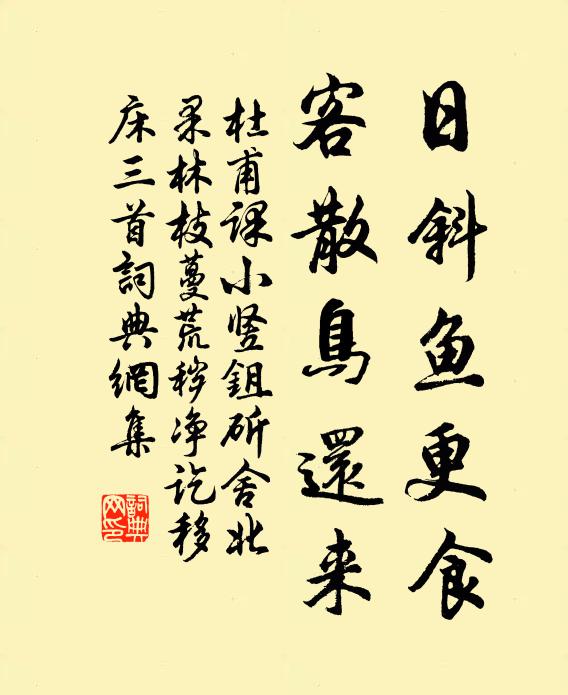 日斜鱼更食
客散鳥還来
杜甫课小竖鉏斫舍北
果林枝蔓荒秽净讫移
床三首詞典網集
詞典
网印